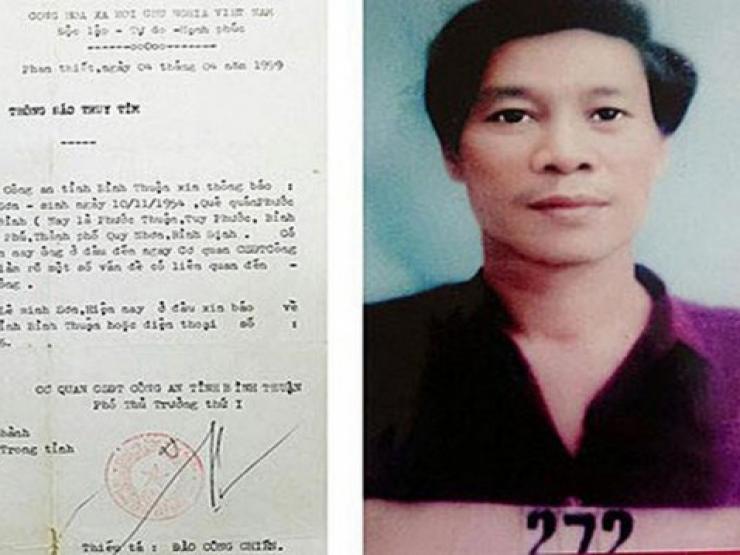 CỘNG HÒA XÃ HỘI CHỦ NGHĨA VIỆT NAM
Độc lập - Tự do -Hạnh phúc
------ooOoo-------
Phan thiết,ngày 04 tháng 04 năm 1999
THÔNG BÁO TRUY TÌM
-----
Công an tỉnh Bình Thuận xin thông báo :
Sơn - sinh ngày 10/11/1954 ,Quê quánPhước
Bình ( Nay là Phước Thuận,Tuy Phước, Bình
Phú,Thành phố Quy Nhơn,Bình Định . Cố
nay ông ở đâu đến ngay Cơ quan CSĐTCông
rõ một số vấn đề có liên quan đến -
ông .
minh Sơn,Hiện nay ở đâu xin báo về
Bình Thuận hoặc điện thoại số :
CƠ QUAN CSĐT CÔNG AN TỈNH BÌNH THUẬN
Phó Thủ Trưởng thứ I
Trong tỉnh
Thiếu tá : ĐÀO CÔNG CHIẾN.
272